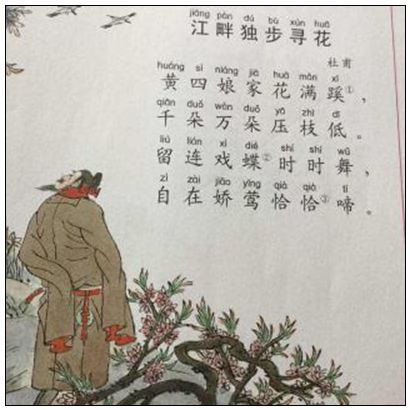 jiāng pàn dú bù xún huā
江畔独步寻花
杜甫
huáng sì niáng jiā huā mǎn xī
黄四娘家花满蹊①，
qiān duǒ wàn duǒ yā zhī dī
千朵万朵压枝低。
liú lián xì dié shí shí wǔ
留连戏蝶②时时舞，
zì zài jiāo yīng qià qià tí
自在娇莺恰恰③啼。